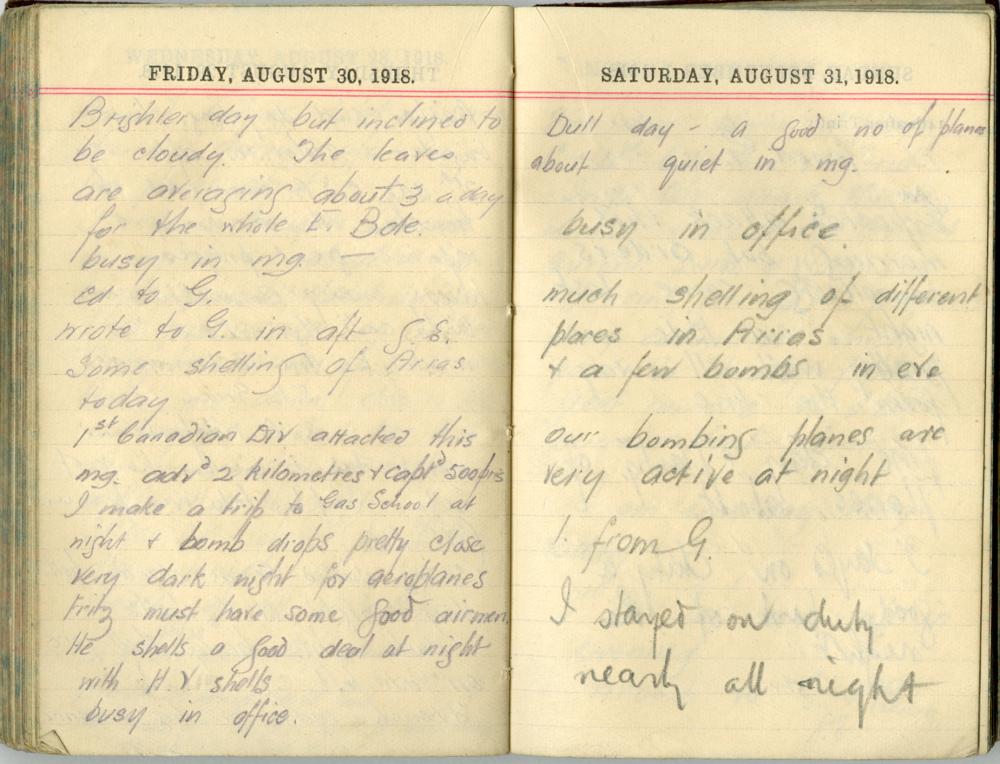 FRIDAY, AUGUST 30, 1918.
Brighter day but inclined to
be cloudy. The leaves
are averaging about 3 a day
for the whole Bde.
busy in mg. —
cd to G.
wrote to G. in aft
Some shelling of Arras
today
1st Canadian Div attacked this
mg. advd 2 kilometres & captd 500 prs
I make a trip to Gas School at
night & bomb drops pretty close
very dark night for aeroplanes
Fritz must have some good airmen.
He shells a good deal at night
with H.V shells
busy in office.
SATURDAY, AUGUST 31, 1918.
Dull day - a good no of planes
about quiet in mg.
busy in office.
much shelling of different
places in Arras
& a few bombs in eve
our bombing planes are
very active at night
l. from G.
I stayed on duty
nearly all night